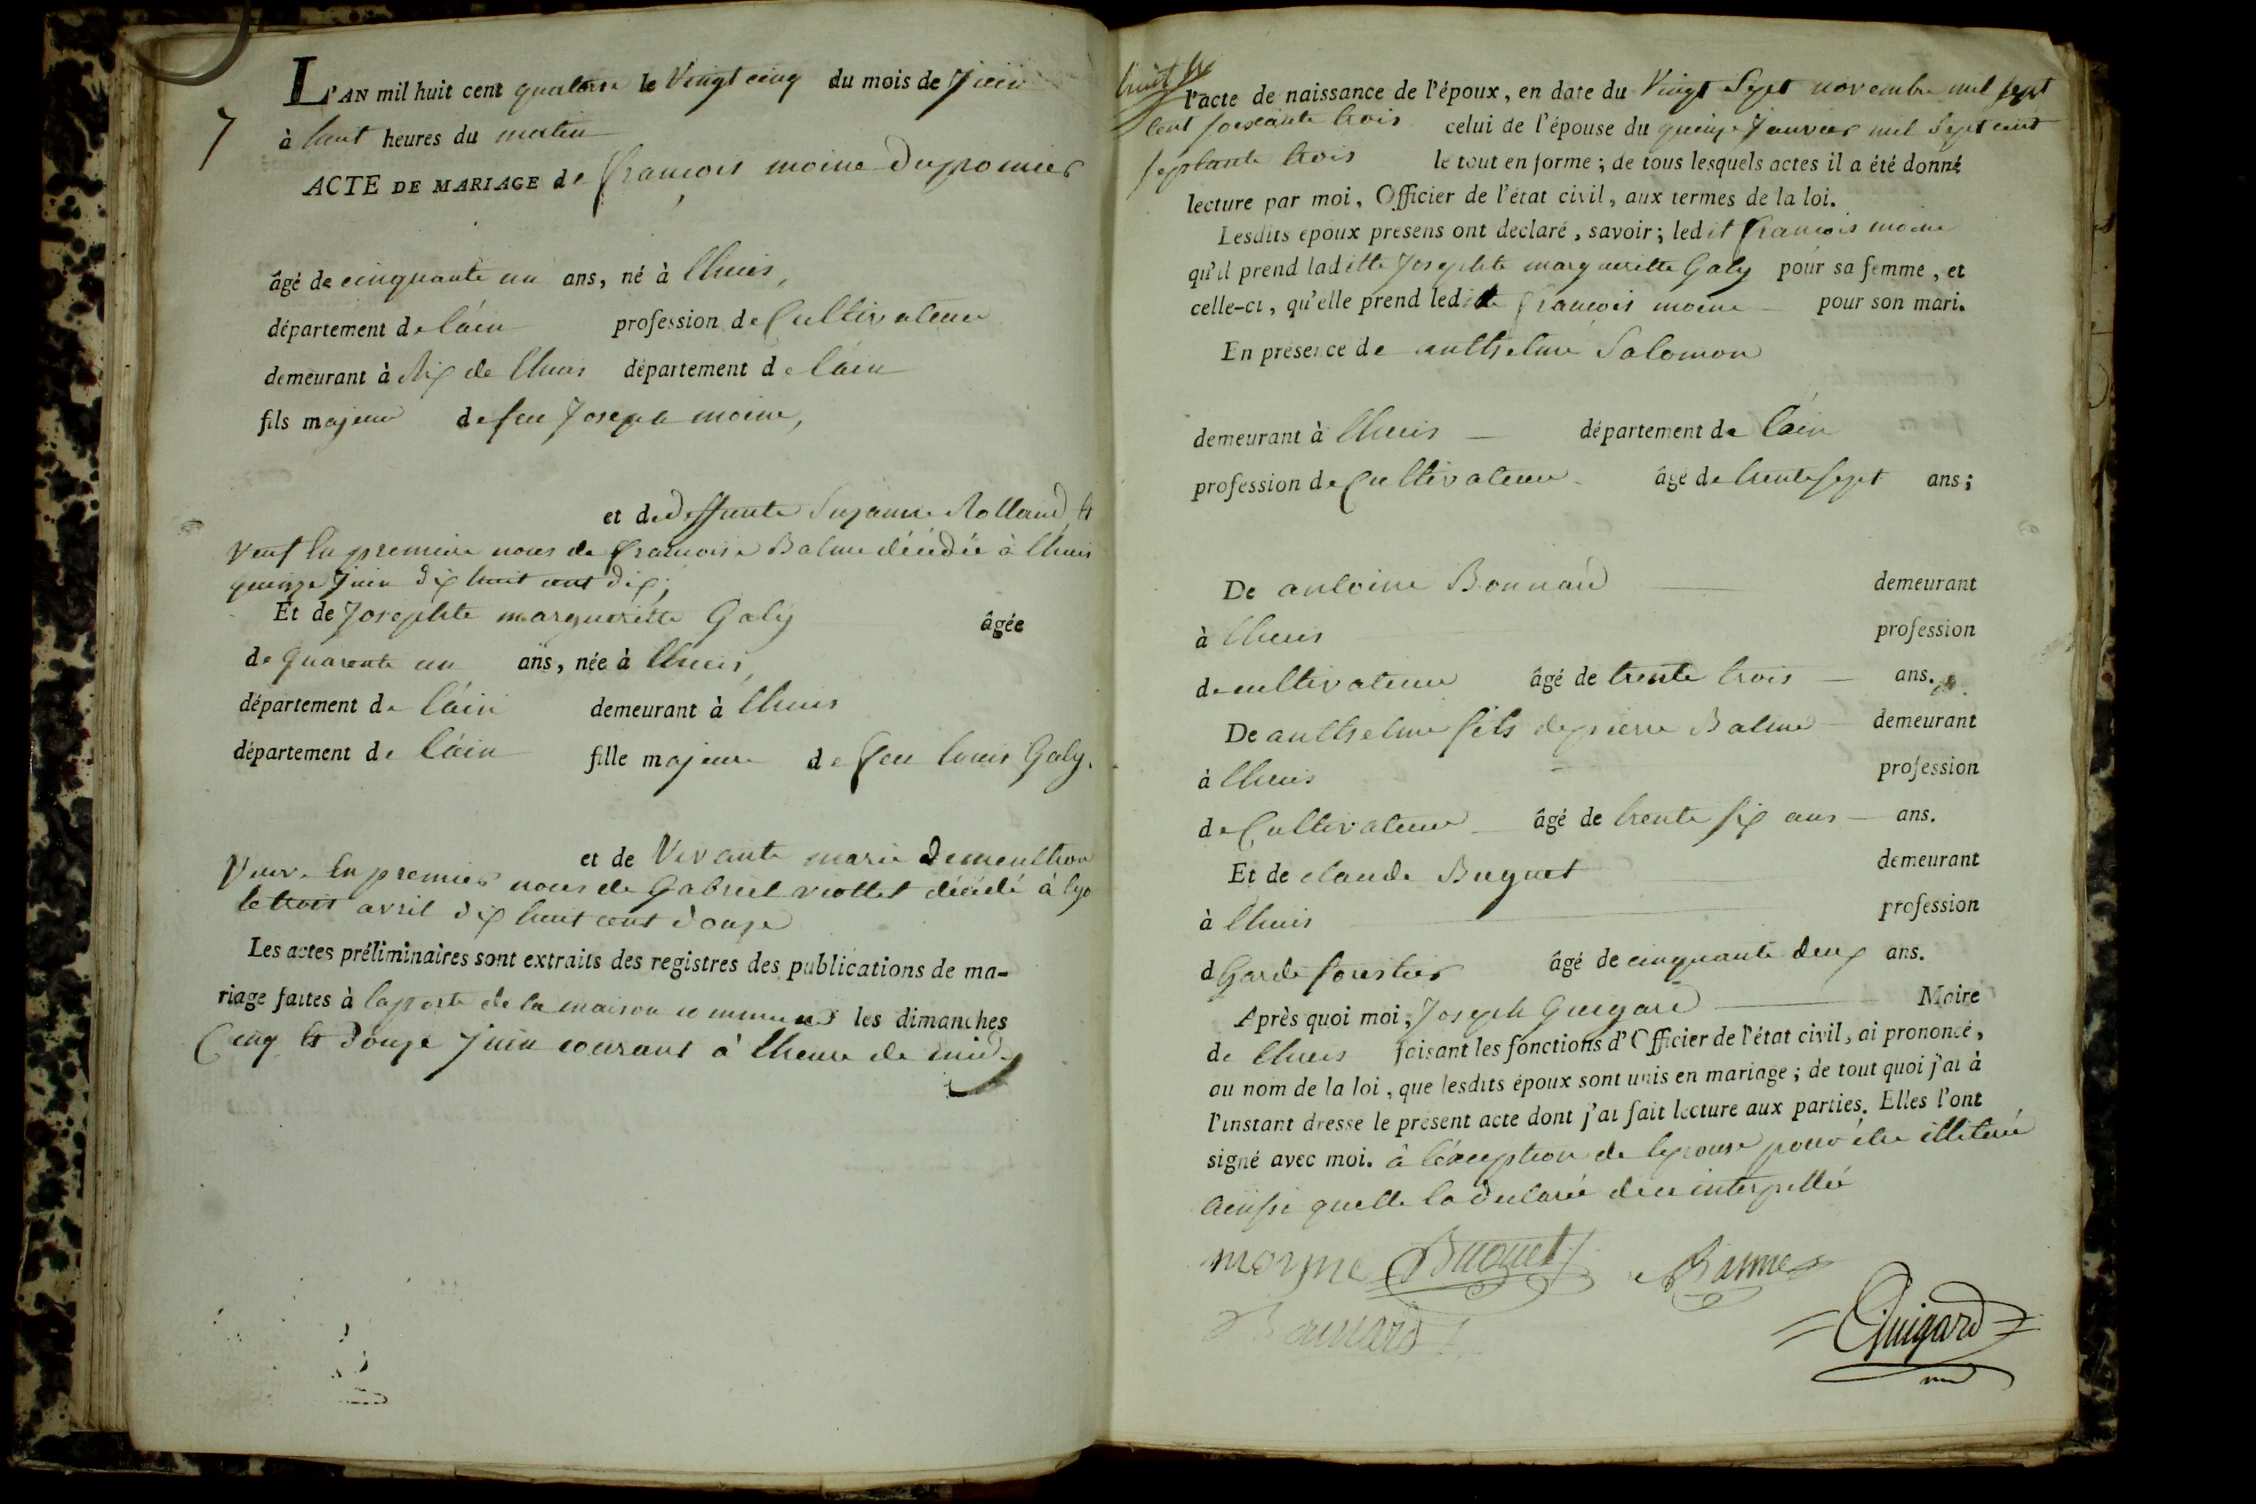 L'AN mil huit cent quatorze le Vingt cinq du mois de Juin
7
à huit heures du matin
ACTE DE MARIAGE de françois moine Dupromier
âgé de cinquante un ans, né à lhuis,
département de l'áin profession de Cultivateur
demeurant à Rix de lhuis département de l'áin
fils majeur de feu Joseph moine,
et de deffunte Suzanne Rolland, et
Veuf En premiere noces de françoise Balme décédée à lhuis
quinze Juin dix huit cent dix;
Et de Josephte margueritte Galy âgée
de quarente un ans, née à lhuis,
département de l'áin demeurant à lhuis
département de l'áin fille majeure de feu louis Galy.
et de Vivante marie Dementhon
Veuve En premier noces de Gabriel viollet décédé à lyo
le trois avril dix huit cent douze
Les actes préliminaires sont extraits des registres des publications de ma-
riage faites à la porte de la maison commune les dimanches
Cinq et Douze Juin courant à l'heure de midy
lhuit
l'acte de naissance de l'époux, en date du Vingt Sept novembre mil sept
Cent soixante trois celui de l'épouse du quinze Janvier mil Sept cent
septante trois le tout en forme; de tous lesquels actes il a été donné
lecture par moi, Officier de l'état civil, aux termes de la loi.
Lesdits époux présens ont déclaré, savoir; ledit françois moine
qu'il prend laditte Josephte margueritte Galy pour sa femme, et
celle-ci, qu'elle prend ledit françois moine pour son mari.
En présence de anthelme Salomon
demeurant à lhuis département de l'áin
profession de Cultivateur âgé de trente sept ans;
De antoine Bonnard demeurant
à lhuis profession
de cultivateur âgé de trente trois ans.
De anthelme fils de pierre Balme demeurant
à lhuis profession
de Cultivateur âgé de trente six ans ans.
Et de claude Buguet demeurant
à lhuis profession
d Garde forestier âgé de cinquante deux ans.
Après quoi moi, Joseph Guigard Maire
de lhuis faisant les fonctions d'Officier de l'état civil, ai prononcé,
au nom de la loi, que lesdits époux sont unis en mariage; de tout quoi j'ai à
l'instant dressé le présent acte dont j'ai fait lecture aux parties. Elles l'ont
signé avec moi. à l'éxeption de lepouse pour être illiteré
ainssi quelle la declaré de ce interpellée
moyne Buguet Balme
Bonnard
Guigard